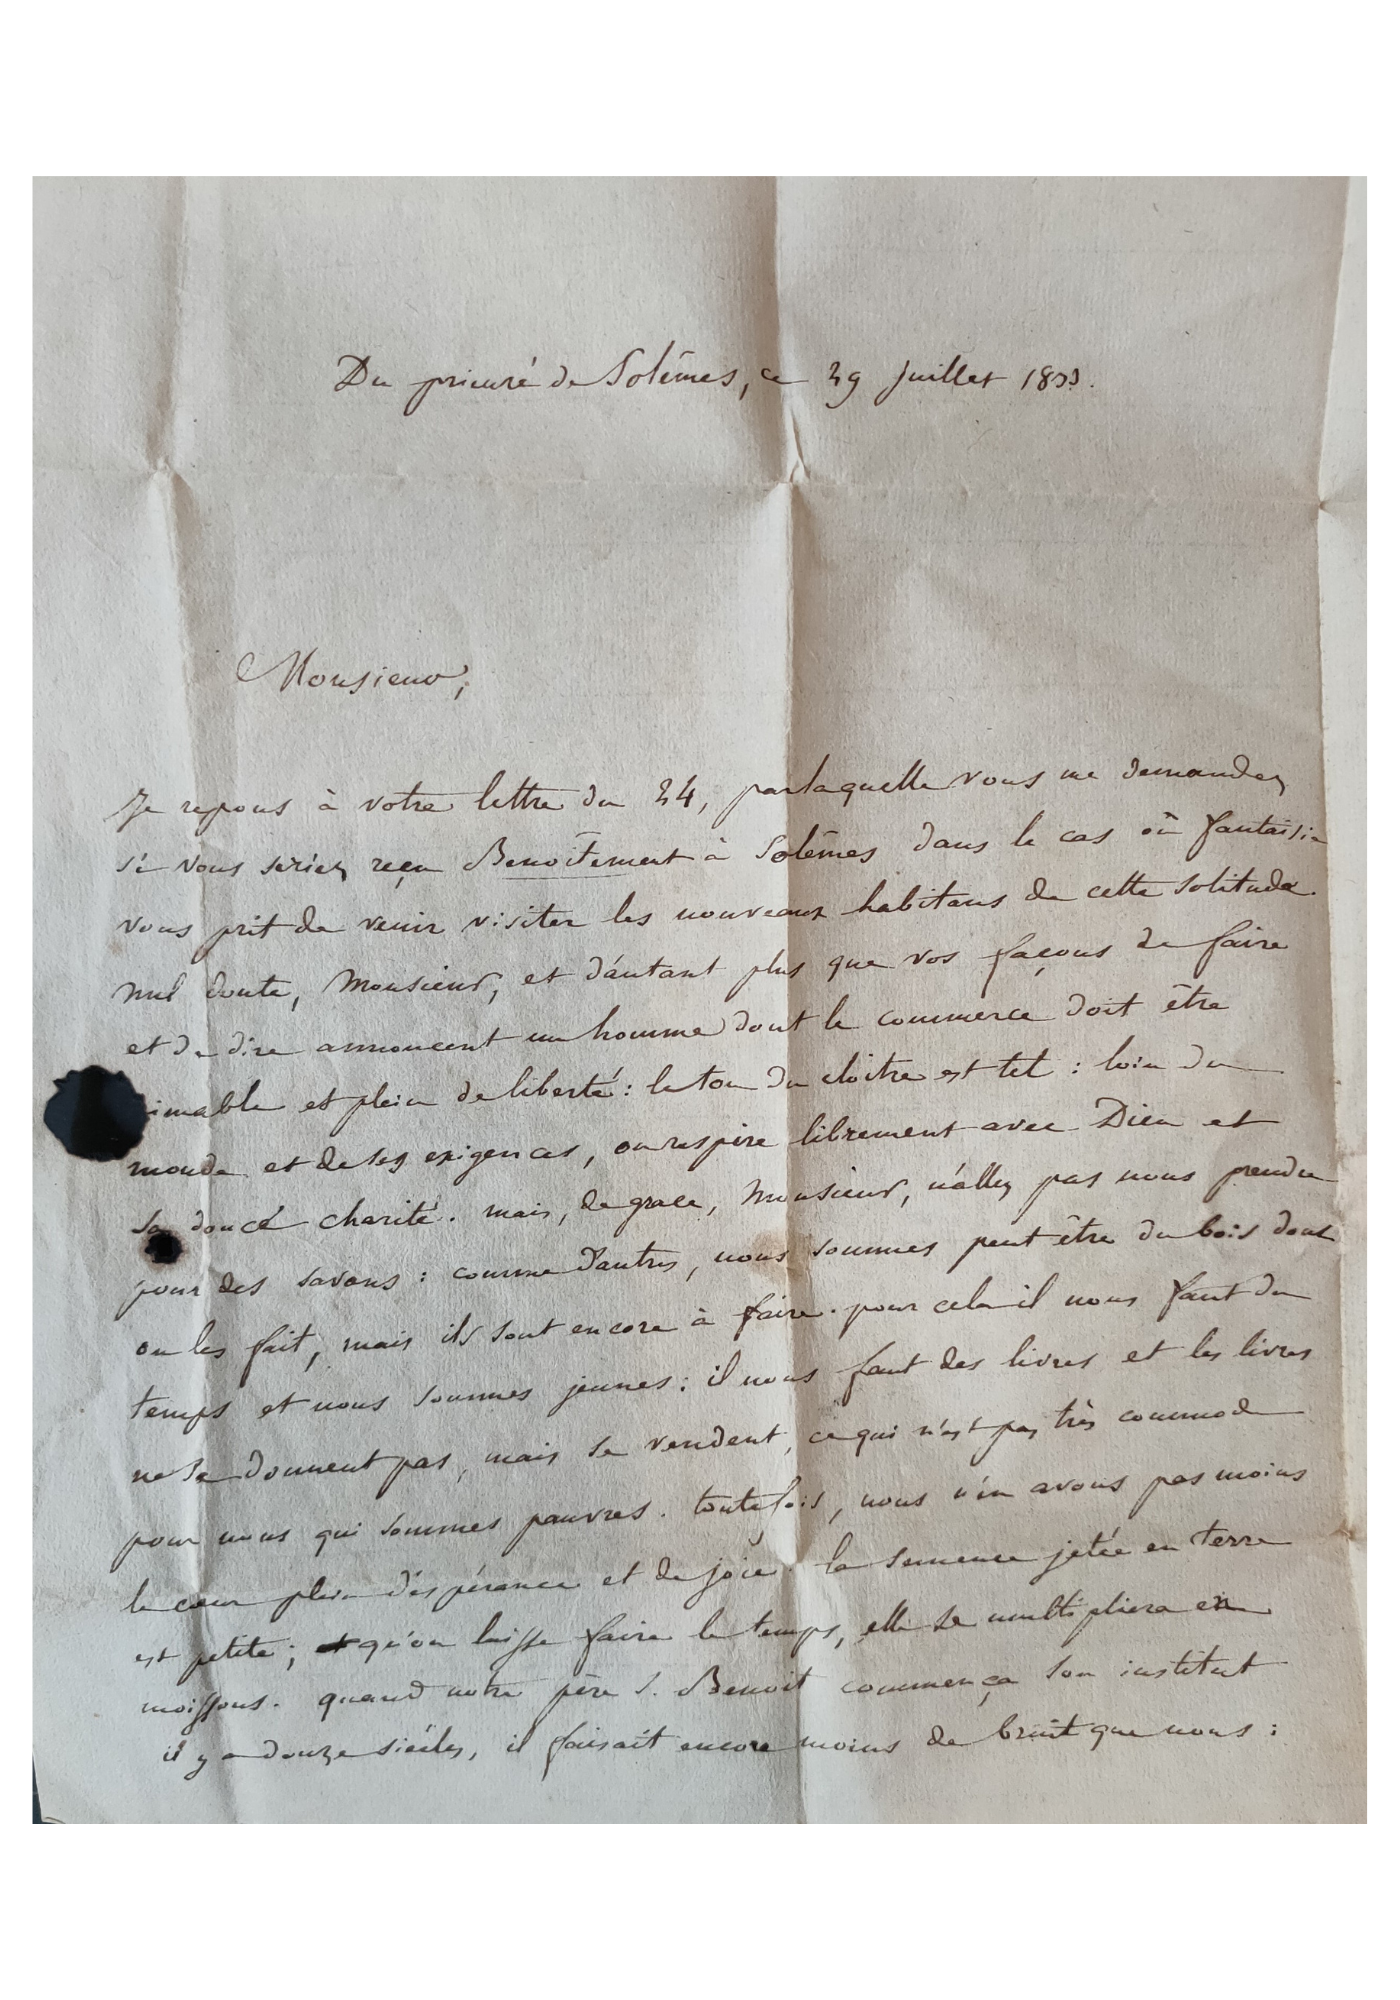 Du prieuré de Solêmes, ce 29 juillet 1833.
Monsieur,
Je repons à votre lettre du 24, par laquelle vous me demandez
si vous seriez reçu Benoîtement à Solêmes dans le cas où fantaisie
vous prit de venir visiter les nouveaux habitans de cette solitude.
nul doute, Monsieur, et d'autant plus que vos façons de faire
et de dire annoncent un homme dont le commerce doit être
imable et plein de liberté : le ton du cloitre est tel : loin du
monde et de ses exigences, on respire librement avec Dieu et
sa douce charité. mais, de grace, Monsieur, n'allez pas nous prendre
pour des savans : comme d'autres, nous sommes peut être du bois dont
on les fait, mais ils sont encore à faire. pour cela il nous faut du
temps et nous sommes jeunes : il nous faut des livres et les livres
ne se donnent pas, mais se vendent, ce qui n'est pas très commode
pour nous qui sommes pauvres. toutefois, nous n'en avons pas moins
le cœur plein d'espérance et de joie. la semence jetée en terre
est petite ; qu'on laisse faire le temps, elle se multipliera en
moissons. quand notre père S. Benoit commença son institut
il y a douze siècles, il faisait encore moins de bruit que nous :